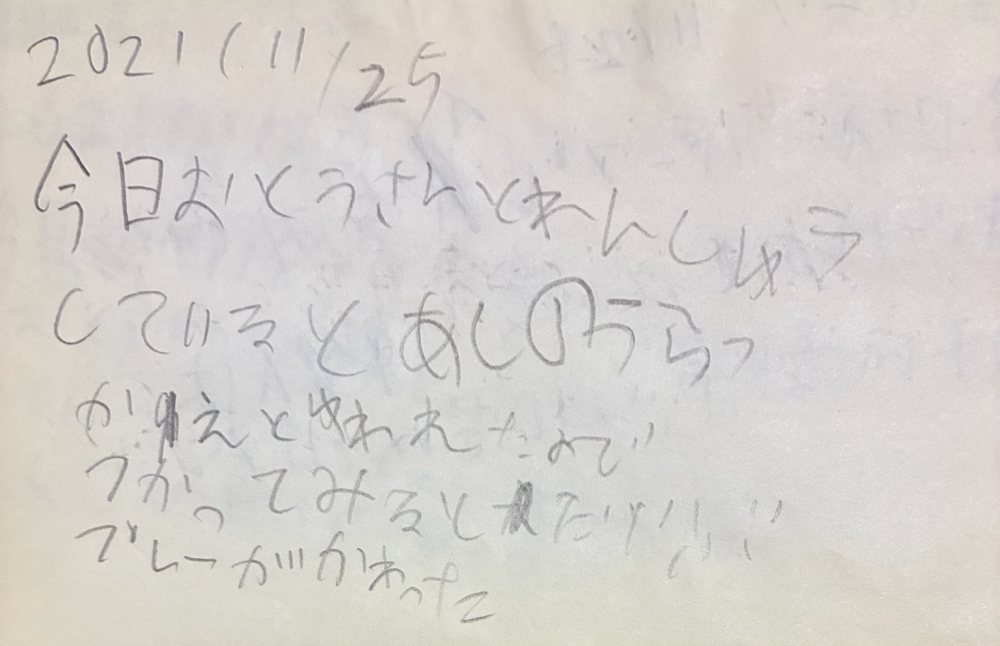 2021/11/25
今日おとうさんとれんしゅう
しているとあしのうらつ
かえとゆわれたので
つかってみると だい
プレーががかわった